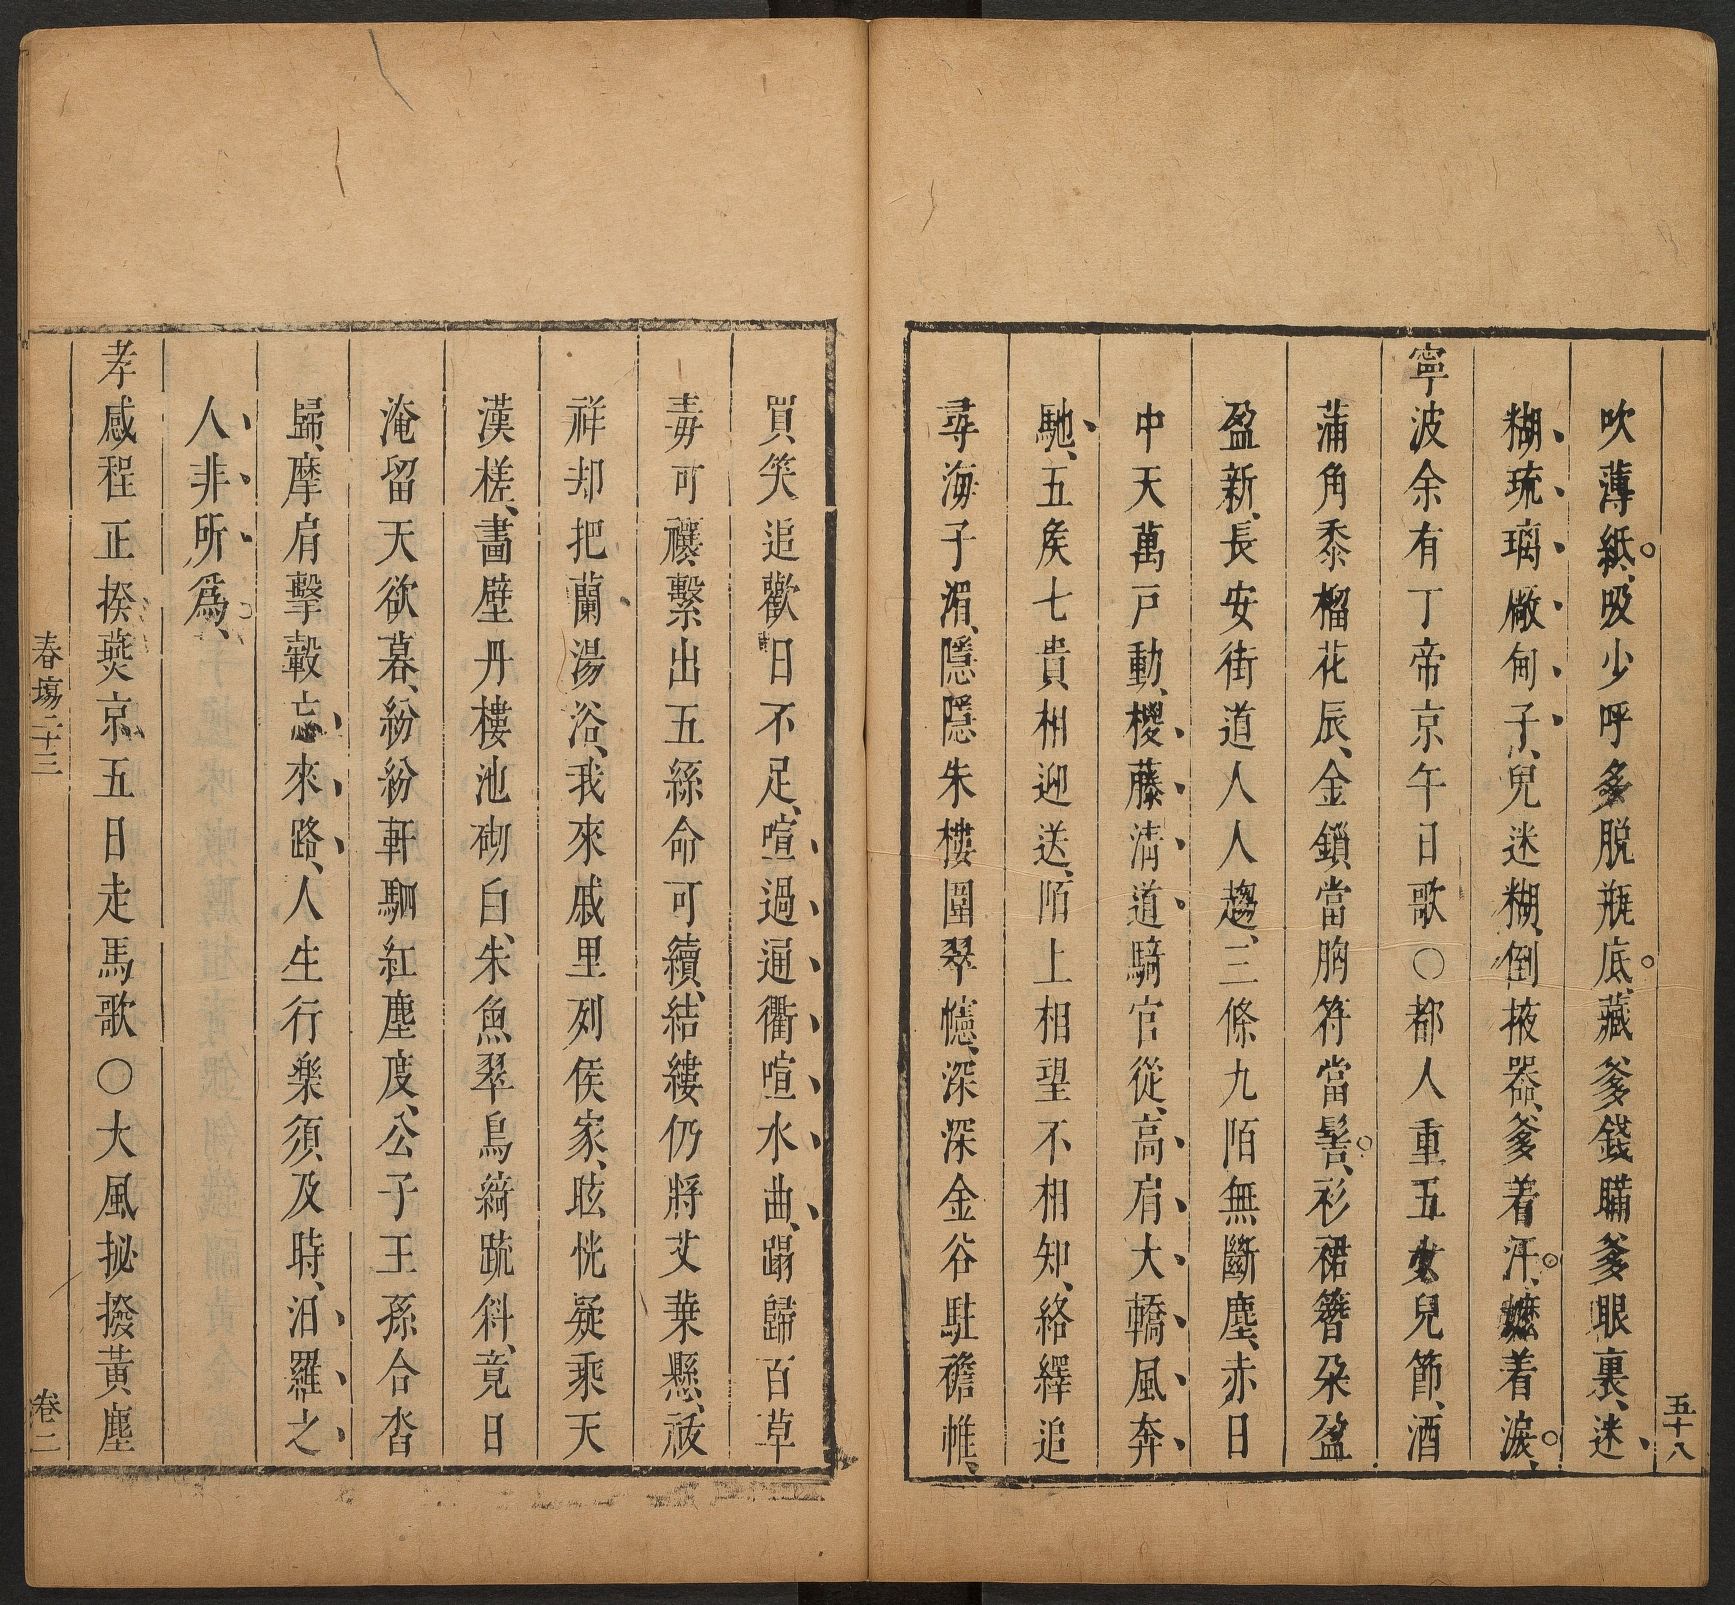 五十八
吹薄紙、吸少呼多脫瓶底、藏爹錢瞞爹眼裏、迷
糊琉璃厰甸子、兒迷糊、倒掖器、爹着汗、嬷着淚、
寧波余有丁帝京午日歌○都人重五女兒節、酒
蒲角黍榴花辰、金鎖當胸符當髻、衫裙簪朶盈
盈新、長安街道人人趨、三條九陌無斷塵、赤日
中天萬戸動、椶藤清道騎官從、高肩大轎風奔
馳、五矦七貴相迎送、陌上相望不相知、絡繹追
尋海子湄、隱隱朱樓圍翠幰、深深金谷駐襜帷、
買笑追歡日不足、喧過通衢喧水曲、蹋歸百草
毒可禳、繫出五絲命可續、結縷仍將艾葉懸、祓
祥却把蘭湯浴、我來戚里列侯家、眩恍疑乘天
漢槎、畵壁丹樓池砌白、朱魚翠鳥綺䟽斜、竟日
淹留天欲暮、紛紛軒駟紅塵度、公子王孫合沓
歸、摩肩擊轂忘來路、人生行樂須及時、汨羅之
人非所爲、
孝感程正揆燕京五日走馬歌○大風㧙撥黃塵
春塲二十三
卷二